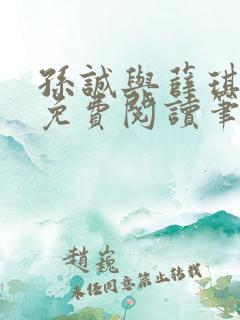 孫誠與薛琪
免費閱讀筆
趙巍
未經同意禁止轉載